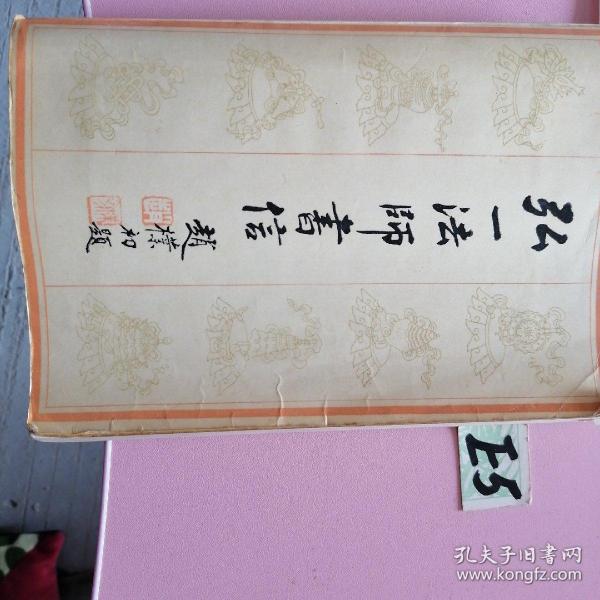 弘一法師書信
趙樸初題
E5
孔夫子旧書网
www.kongfz.com